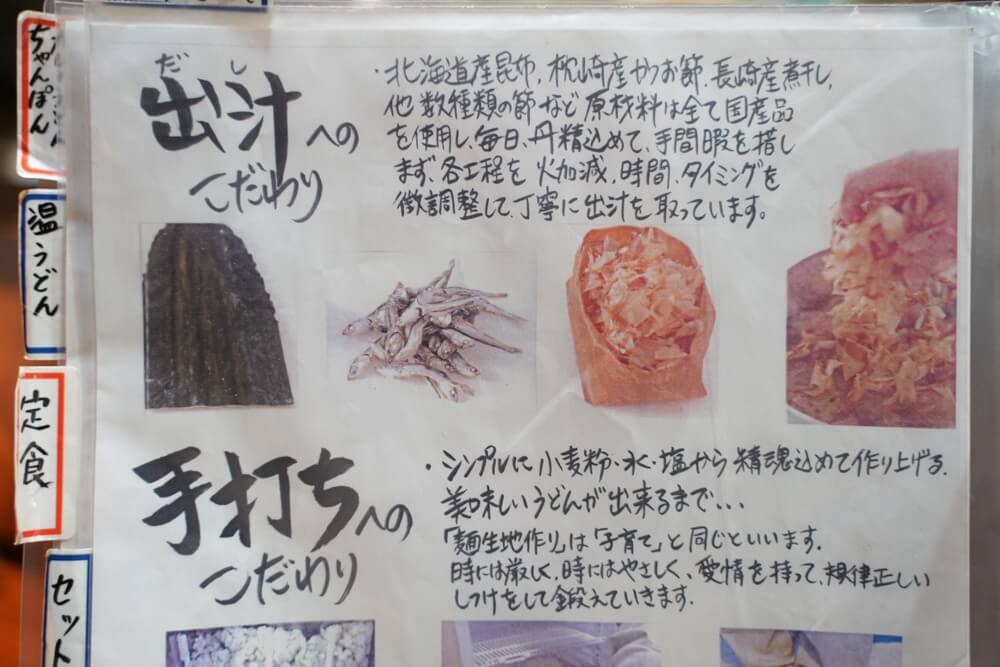 ちゃんぽん
温うどん
定食
セット
だし
出汁への
こだわり
・北海道産昆布、枕崎産かつお節、長崎産煮干し、
他数種類の節など原材料は全て国産品
を使用し、毎日、丹精込めて、手間暇を惜し
まず、各工程を火加減、時間、タイミングを
微調整して、丁寧に出汁を取っています。
手打ちへの
こだわり
・シンプルに小麦粉・水・塩から精魂込めて作り上げる。
美味しいうどんが出来るまで...
「麺生地作り」は「子育て」と同じといいます。
時には厳しく、時にはやさしく、愛情を持って、規律正しい
しつけをして鍛えていきます。